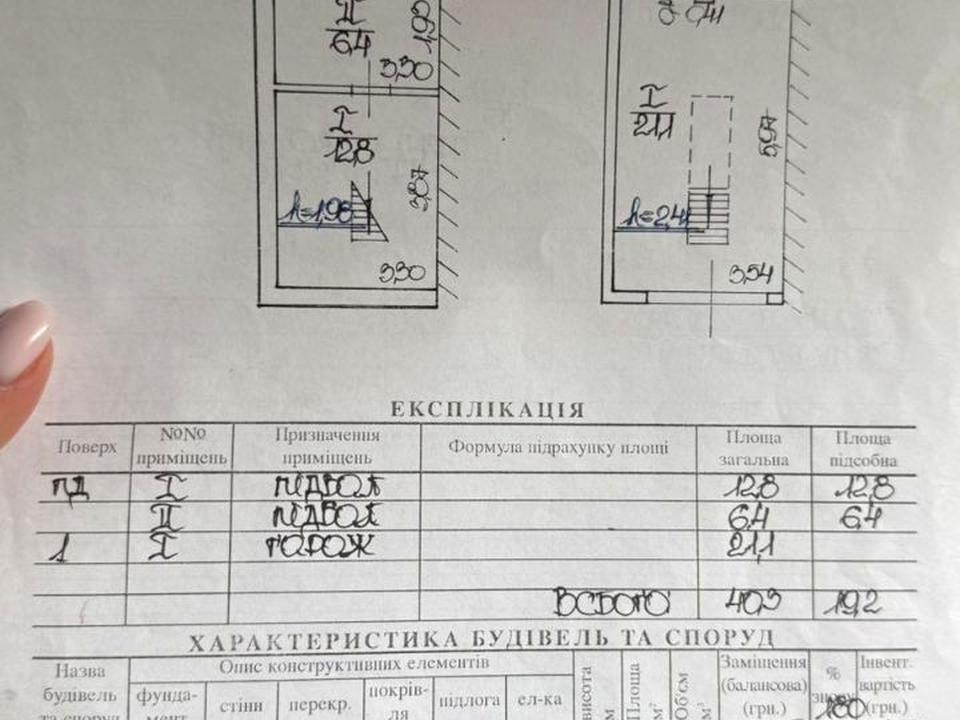 II
6,4
1,92
3,30
I
12,8
3,87
h=1,98
3,30
I
21,1
5,97
h=2,41
3,54
ЕКСПЛІКАЦІЯ
Поверх №№ приміщень Призначення приміщень Формула підрахунку площі Площа загальна Площа підсобна
ПД I ПІДВАЛ 12,8 12,8
II ПІДВАЛ 6,4 6,4
1 I ГАРАЖ 21,1
ВСЬОГО 40,3 19,2
ХАРАКТЕРИСТИКА БУДІВЕЛЬ ТА СПОРУД
Назва будівель та споруд Опис конструктивних елементів висота м Площа м² Об'єм м³ Заміщення (балансова) (грн.) % зносу Інвент. вартість (грн.)
фунда-мент стіни перекр. покрів-ля підлога ел-ка